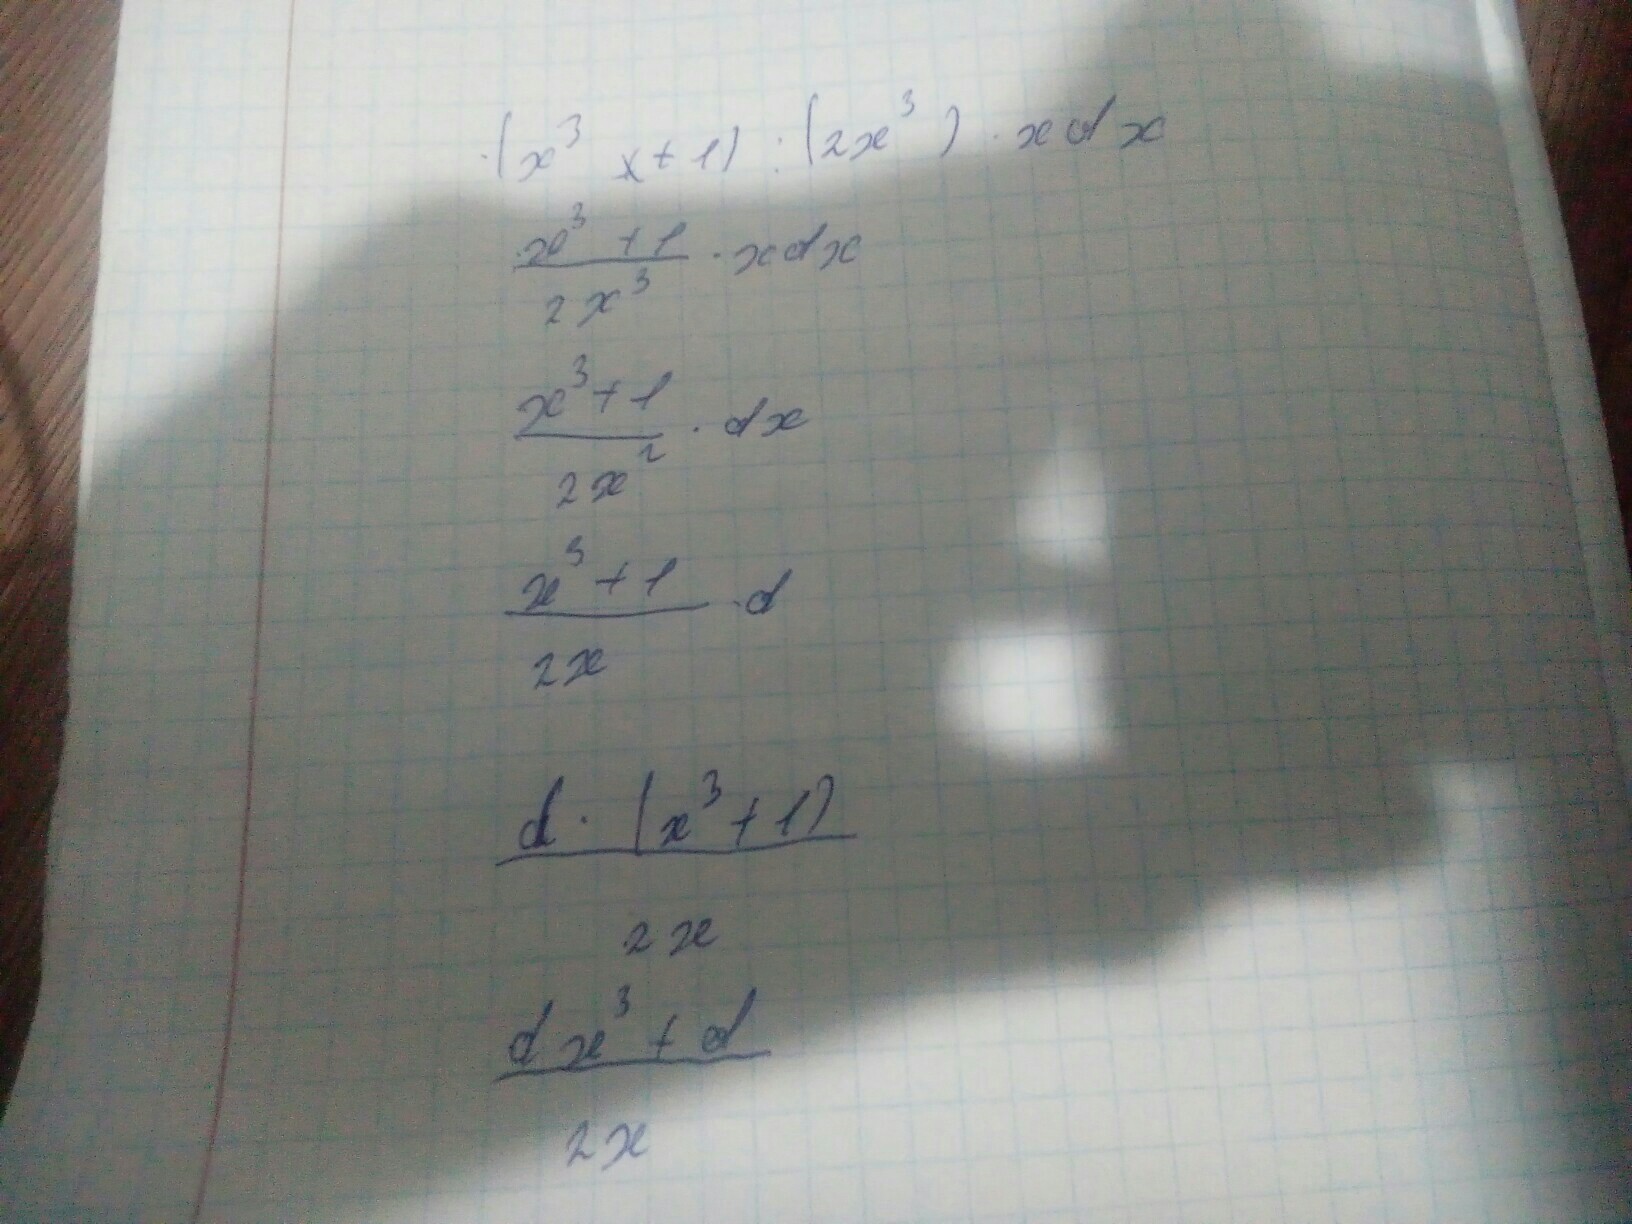 (x³ x+1) : (2x³) · xdx
x³ +1 / 2x³ · xdx
x³+1 / 2x² · dx
x³+1 / 2x · d
d · (x³+1) / 2x
dx³+d / 2x